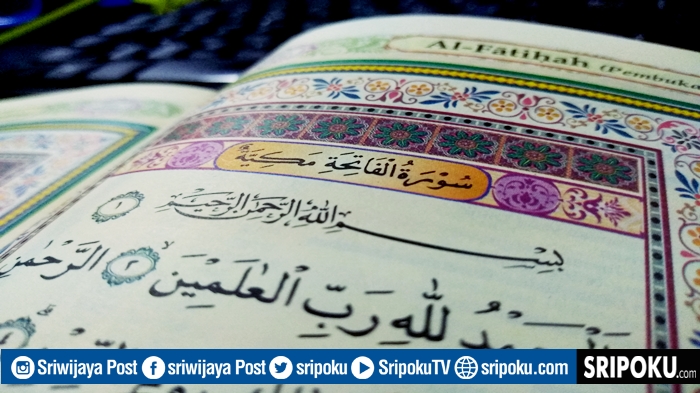 Al-Fātiḥah (Pembuka
سُوْرَةُ الْفَاتِحَةِ مَكِّيَّة
بِسْمِ اللّٰهِ الرَّحْمٰنِ الرَّحِيْمِ ١
لِلّٰهِ رَبِّ الْعٰلَمِيْنَ ٢ الرَّحْمٰنِ
Sriwijaya Post sriwijaya Post sripoku SripokuTV sripoku.com SRIPOKU.com